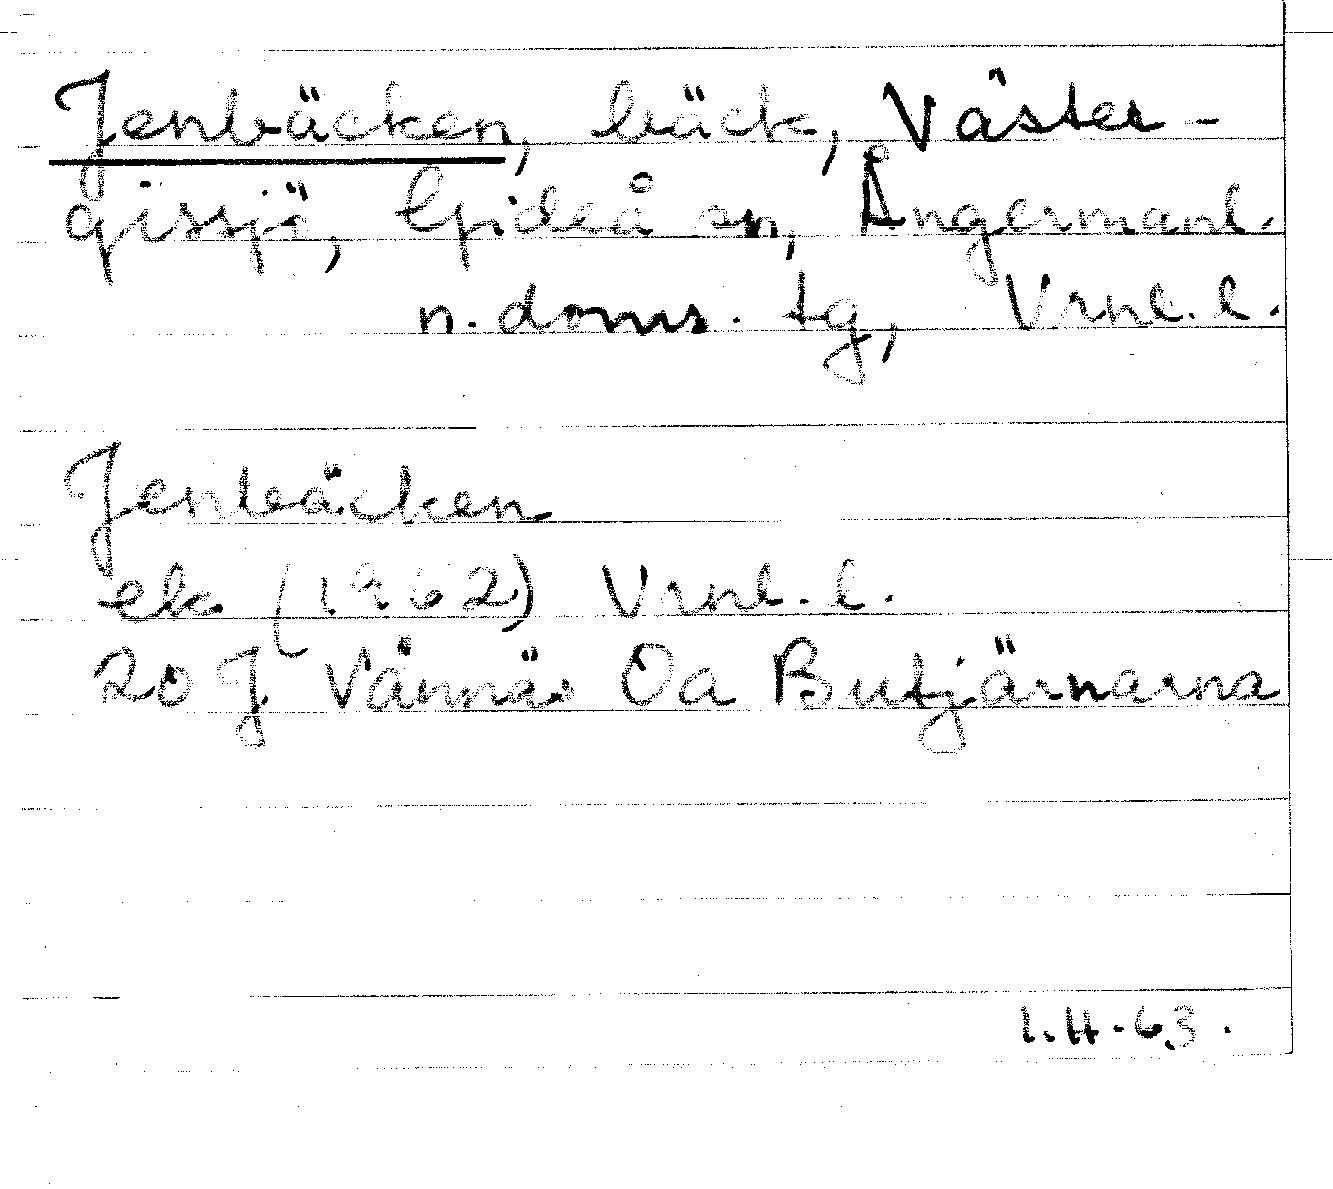 Jenbäcken, bäck, Väster-
gissjö, Gideå sn, Ångermanl.
n. doms. tg, Vrnl. l.
Jenbäcken
ek (1962) Vrnl. l.
20 J Vännäs 0a Butjärnarna
I.H-63.